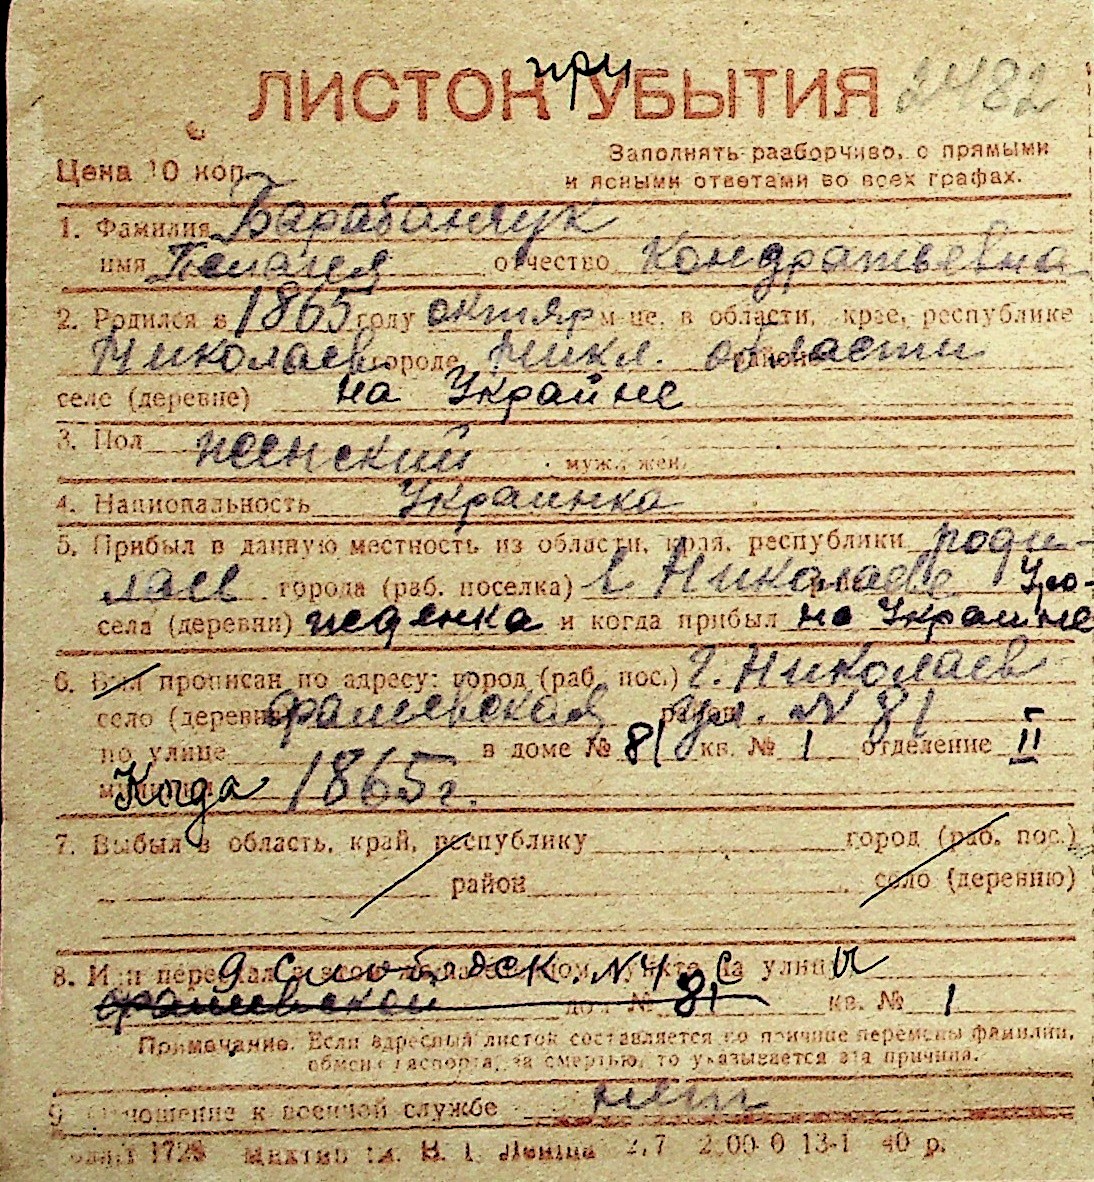 при
ЛИСТОК УБЫТИЯ 2482
Цена 10 коп.
Заполнять разборчиво, с прямыми
и ясными ответами во всех графах.
1. Фамилия Барабанчук
имя Пелагея отчество Кондратьевна
2. Родился в 1865 году октяр м-це, в области, крае, республике
Николаев городе Никл. области
селе (деревне) на Украйне
3. Пол женский муж., жен.
4. Национальность Украинка
5. Прибыл в данную местность из области, края, республики роди-
лась города (раб. поселка) в Николаеве Уро-
села (деревни) жеденка и когда прибыл на Украине
6. Был прописан по адресу: город (раб. пос.) г. Николаев
село (деревня) район ул. № 81
по улице в доме № 81 кв. № 1 отделение II
милиции Когда 1865 г.
7. Выбыл в область, край, республику город (раб. пос.)
район село (деревню)
8. Или переехал в этом же населенном пункте на улицу 9 Слободск. № 4
дом № 81 кв. № 1
Примечание. Если адресный листок составляется по причине перемены фамилии,
обмена паспорта, за смертью, то указывается эта причина.
9. Отношение к военной службе нет
1728 В. І. Леніна 2.000 0 13-1 40 р.